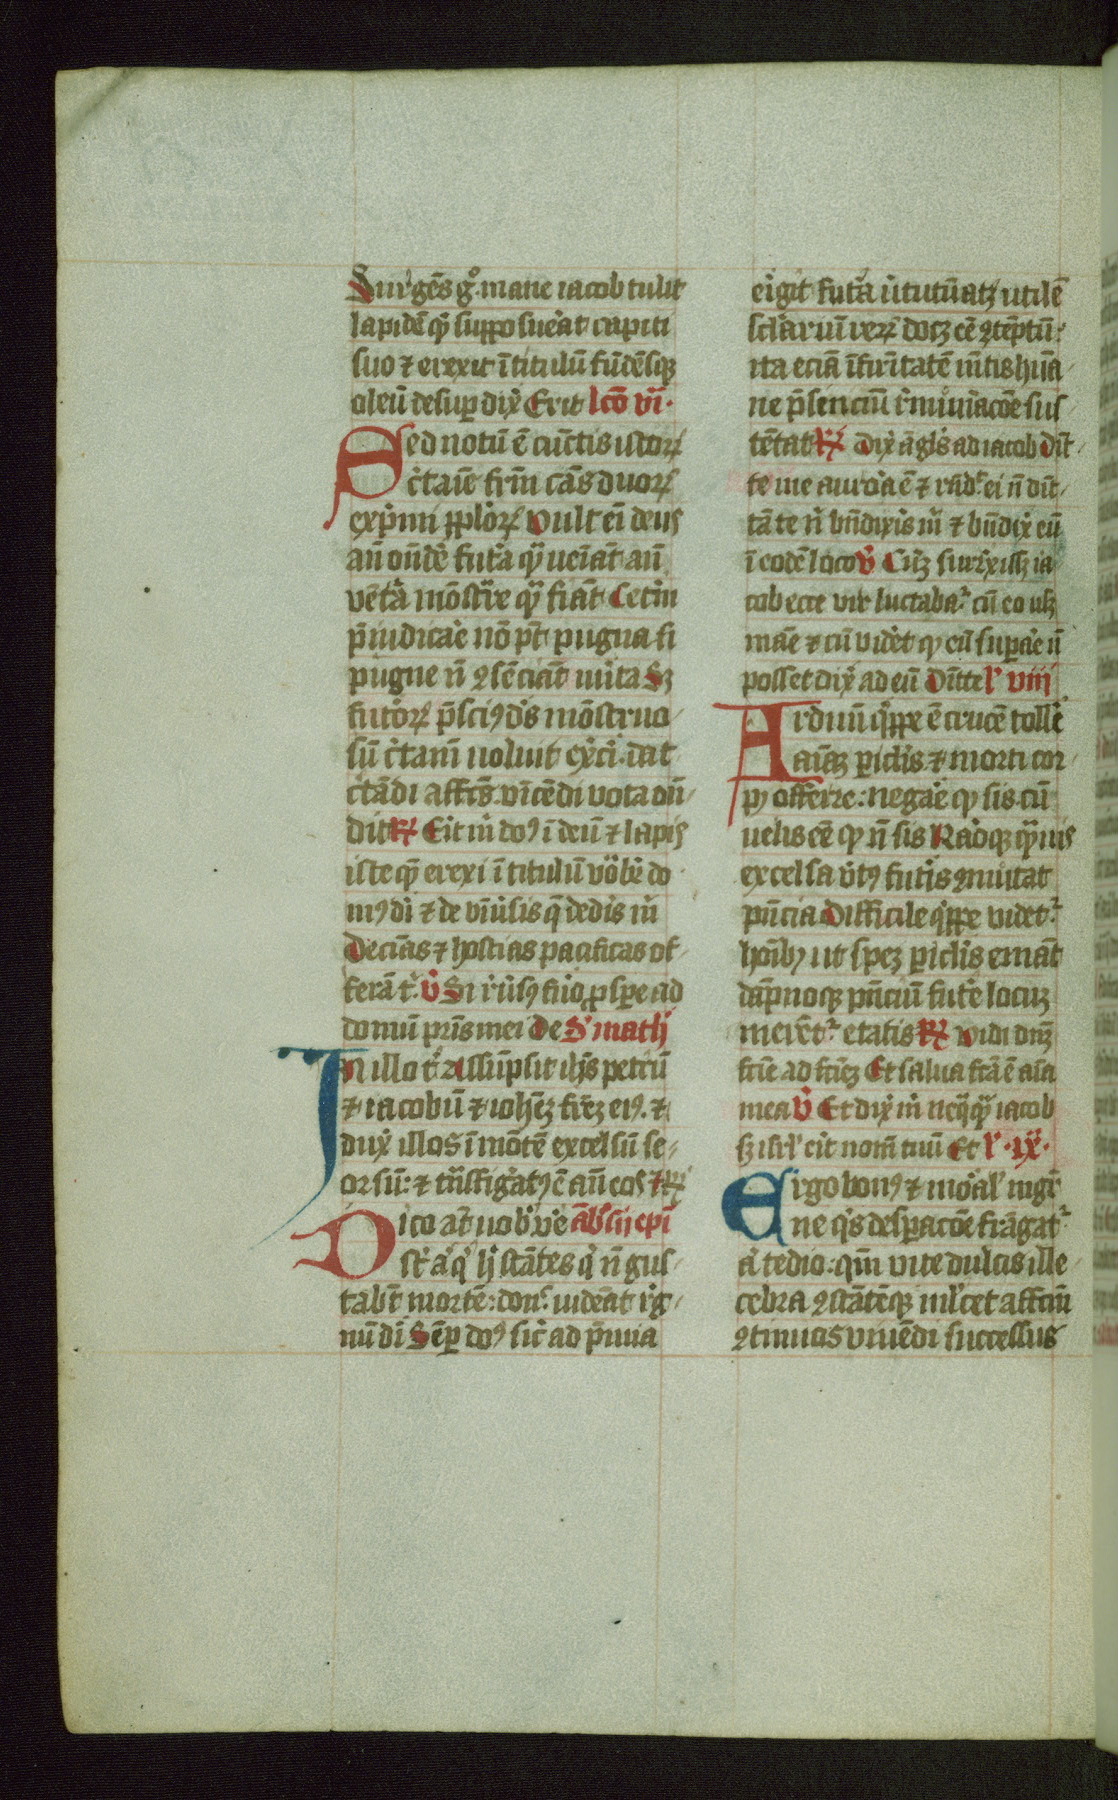 Surgēs gͦ mane iacob tulit
lapidē qͣ suppo sueāt capiti
suo ⁊ erexit ī titulū fūdēsqꝫ
oleū desuꝑ dix̄ Erit lcō vi·
Sed notū ē cunctis istoꝝ
c̄taīe fr̄m cās duoꝝ
exp̄mi pp̄loꝝ vult eī deus
an̄ on̄dē futa qͣ ueīāt an̄
vētā mōstrͤ qͣ fiāt Cet̄m
p̄iudicāe nō pt̄ pugna si
pugne n̄ ꝯsēciāt mīta Sꝫ
futoꝝ p̄sciꝰ ds̄ mōstruo
sū c̄tam̄ uoluit ex̄ci· dat
c̄tādi affc̄s· vīcēdi vota on̄
dit ℟ Eit m̄ dōꝰ ī deū ⁊ lapis
iste qͣ erexi ī titulū vōbr̄ do
mꝰ dī ⁊ de vīūsis q̄ dedīs m̄
Decīas ⁊ hostias pacificas of
ferā t͛· ℣ Si r̄ūsꝰ fūo ꝓsꝑe ad
domū pr̄is mei De S· math
In illo t͛ Assūpsit ihs̄ petrū
⁊ iacobū ⁊ iohēꝫ fr̄eꝫ eiꝰ· ⁊
dux̄ illos ī mōtē excelsū se
orsū: ⁊ tn̄sfigāt̄ꝰ ē an̄ eos ⁊ ℟
Dico at̄ uob̄ v̄e āb̄sij ep̄i
st̄ aͥ qͥ hͥ stātes qͥ n̄ gus
tab̄t mortē: don̄ᶜ uideāt rͤg
nū dī Sēꝑ dōꝰ sīc ad p̄mia
eīgit futa ūtutū atꝫ utilē
sclāriū reꝝ docꝫ cē ꝯtēptū·
ita eciā īfirītatē mn̄tis hūa
ne p̄senciū r̄muīacōe sus
tētat ℟ Dix̄ āgls̄ ad iacob Dīt
te me aurōa ē ⁊ rn̄d͛ ei n̄ dīt
tā te n̄ bn̄dixīs m̄ ⁊ bn̄dix̄ eū
ī eodē loco ℣ Cūꝫ surr̄xissꝫ ia
cob ecce vir luctaba͛ cū eo usꝫ
māe ⁊ cū vidēt qͣ eū supāe n̄
posset dix̄ ad eū Dītte lͥ viij
Arduū qͥppe ē crucē tollē
aīaꝫqꝫ ꝑiclīs ⁊ morti cor
pꝫ offerre: negāe qͣ sis· cū
uelis cē qͣ n̄ sis Rāoqꝫ qͣuis
excelsa v̄tꝰ futīs ꝯmūtat
pn̄cia Difficile qͥppe videt͛
hoīb̄ꝫ ut spez ꝑiclīs emāt
dāpnoqꝫ pn̄ciū fut̄e locuꝫ
merēt͛ etatis ℟ vidi dnꝫ
fcīe ad fcīeꝫ Et salua fcā ē aīa
mea ℣ Et dix̄ m̄ neqͣqͣ iacob
sꝫ isrͣl eīt nom̄ tuū Et lͥ·ix·
Ergo bonꝰ ⁊ mōalͥ mgr͛
ne qͥs despacōe frāgat͛
aͥ tedio: qm̄ vite dulcis ille
cebra ꝯstātēqꝫ ml̄cet affcm̄
ꝯtinucis viuēdi successus